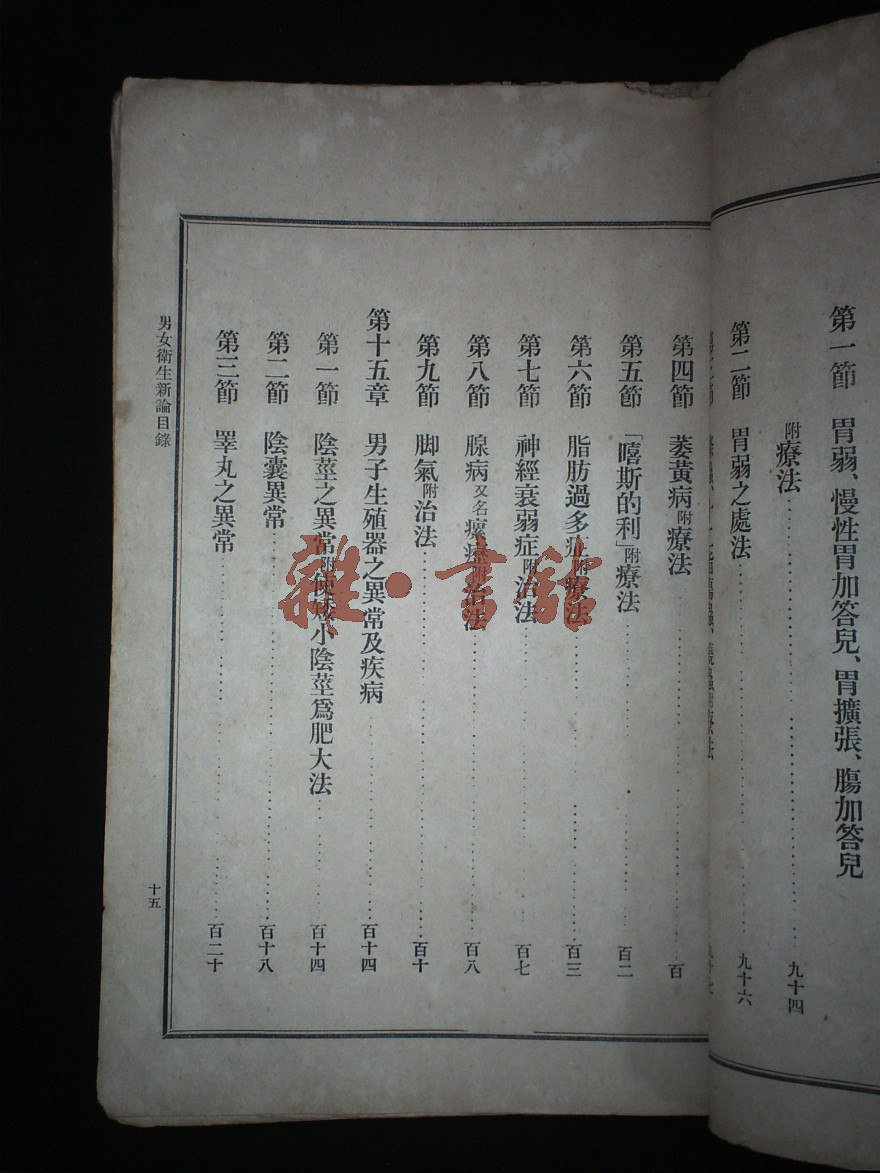 第一節 胃弱、慢性胃加答兒、胃擴張、膓加答兒
附療法 九十四
第二節 胃弱之處法 九十六
第四節 萎黃病附療法 百
第五節 「嘻斯的利」附療法 百二
第六節 脂肪過多症附療法 百三
第七節 神經衰弱症附治法 百七
第八節 腺病又名瘰癧附治法 百八
第九節 脚氣附治法 百十
第十五章 男子生殖器之異常及疾病 百十四
第一節 陰莖之異常附使矮小陰莖爲肥大法 百十四
第二節 陰囊異常 百十八
第三節 睪丸之異常 百二十
男女衛生新論目錄 十五
雜·書館